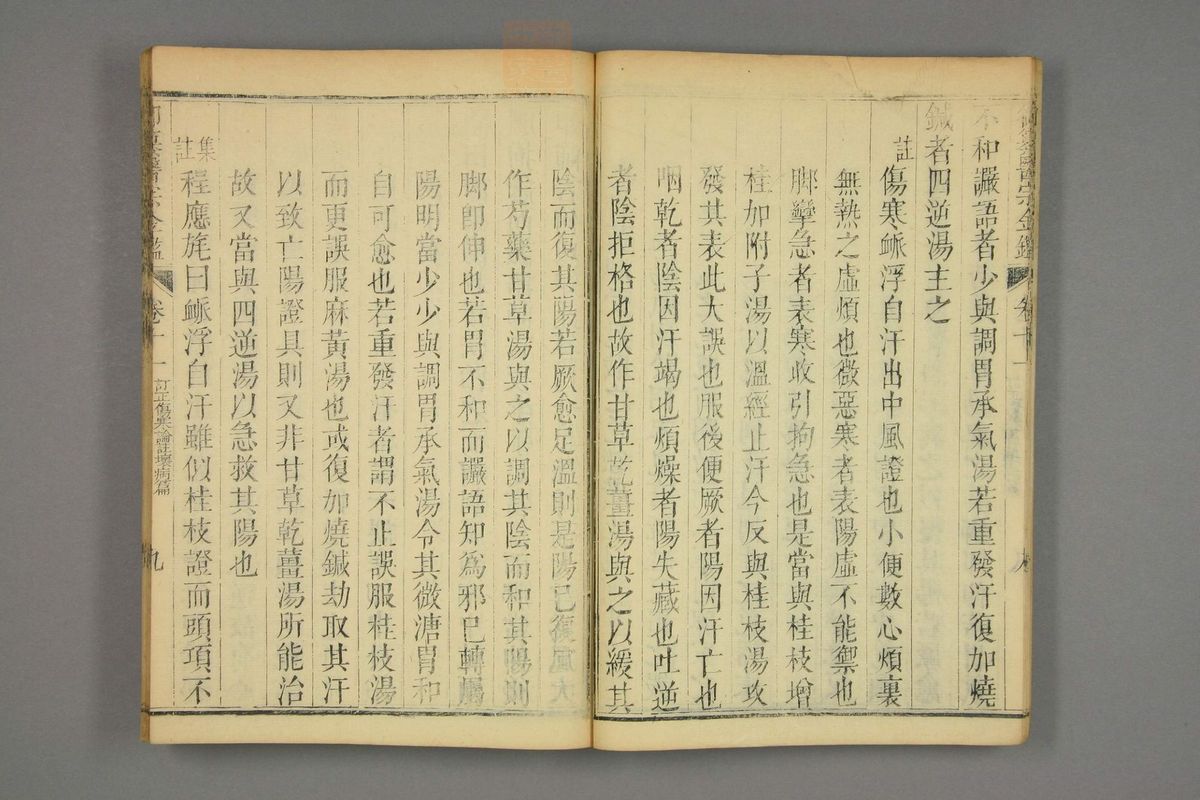 御纂醫宗金鑑 卷十一
不和讝語者少與調胃承氣湯若重發汗復加燒
鍼者四逆湯主之
註
傷寒脈浮自汗出中風證也小便數心煩裏
無熱之虛煩也微惡寒者表陽虛不能禦也
脚攣急者表寒收引拘急也是當與桂枝增
桂加附子湯以溫經止汗今反與桂枝湯攻
發其表此大誤也服後便厥者陽因汗亡也
咽乾者陰因汗竭也煩燥者陽失藏也吐逆
者陰拒格也故作甘草乾薑湯與之以緩其
陰而復其陽若厥愈足溫則是陽已復宜大
作芍藥甘草湯與之以調其陰而和其陽則
脚即伸也若胃不和而讝語知為邪已轉屬
陽明當少少與調胃承氣湯令其微溏胃和
自可愈也若重發汗者謂不止誤服桂枝湯
而更誤服麻黃湯也或復加燒鍼劫取其汗
以致亡陽證具則又非甘草乾薑湯所能治
故又當與四逆湯以急救其陽也
集註
程應旄曰脈浮自汗雖似桂枝證而頭項不
御纂醫宗金鑑 卷十一 訂正傷寒論註壞病篇 九